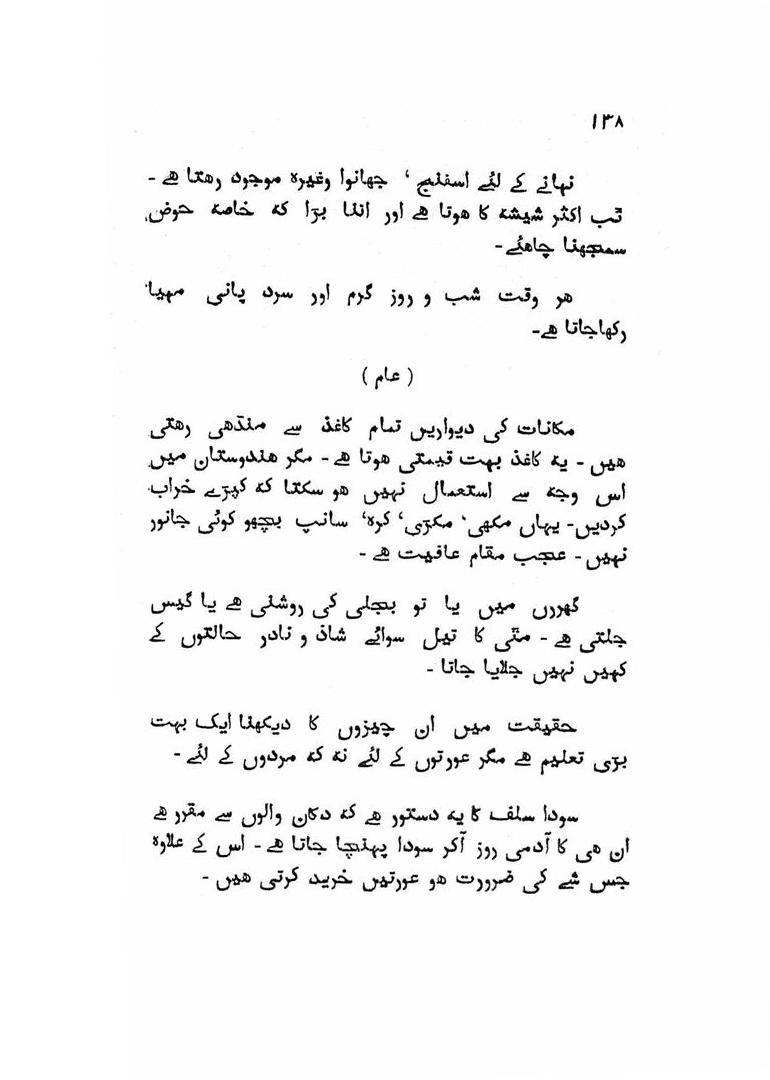 ۱۳۸
نہانے کے لئے اسفنج ، جھانوا وغیرہ موجود رھتا ھے -
ٹب اکثر شیشہ کا ھوتا ھے اور اتنا بڑا کہ خاصہ حوض
سمجھنا چاھئے -
ھر وقت شب و روز گرم اور سرد پانی مہیا
رکھاجاتا ھے-
( عام )
مکانات کی دیواریں تمام کاغذ سے منڈھی رھتی
ھیں - یہ کاغذ بہت قیمتی ھوتا ھے - مگر ھندوستان میں
اس وجہ سے استعمال نہیں ھو سکتا کہ کیڑے خراب
کردیں- یہاں مکھی، مکڑی، کرہ، سانپ بچھو کوئی جانور
نہیں - عجب مقام عافیت ھے -
گھروں میں یا تو بجلی کی روشنی ھے یا گیس
جلتی ھے - مٹی کا تیل سوائے شاذ و نادر حالتوں کے
کہیں نہیں جلایا جاتا -
حقیقت میں ان چیزوں کا دیکھنا ایک بہت
بڑی تعلیم ھے مگر عورتوں کے لئے نہ کہ مردوں کے لئے -
سودا سلف کا یہ دستور ھے کہ دکان والوں سے مقرر ھے
ان ھی کا آدمی روز آکر سودا پہنچا جاتا ھے - اس کے علاوہ
جس شے کی ضرورت ھو عورتیں خرید کرتی ھیں -